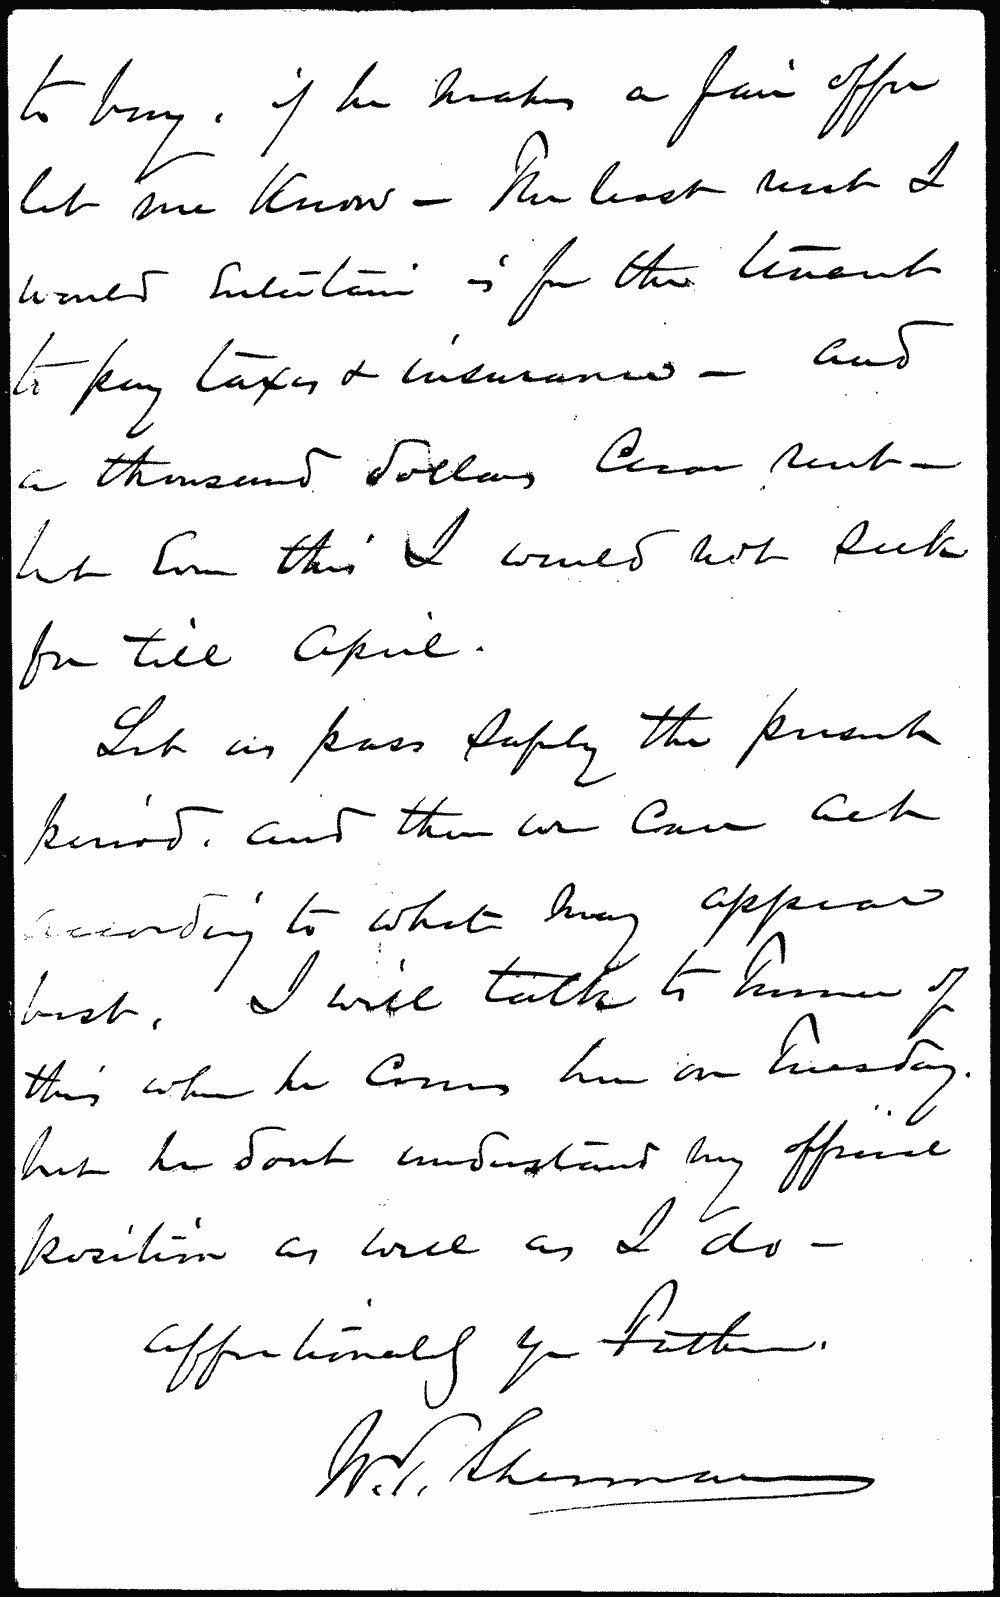 to buy, if he makes a fair offer
let me Know — The least rent I
would Entertain is for the tenant
to pay taxes & insurance — and
a thousand dollars Clear rent —
but Even this I would not seek
for till April.
Let us pass safely the present
period, and then we Can act
according to what may appear
best, I will talk to Turner of
this when he Comes here on Tuesday.
but he dont understand my official
position as well as I do —
affectionately yr Father.
W.T. Sherman